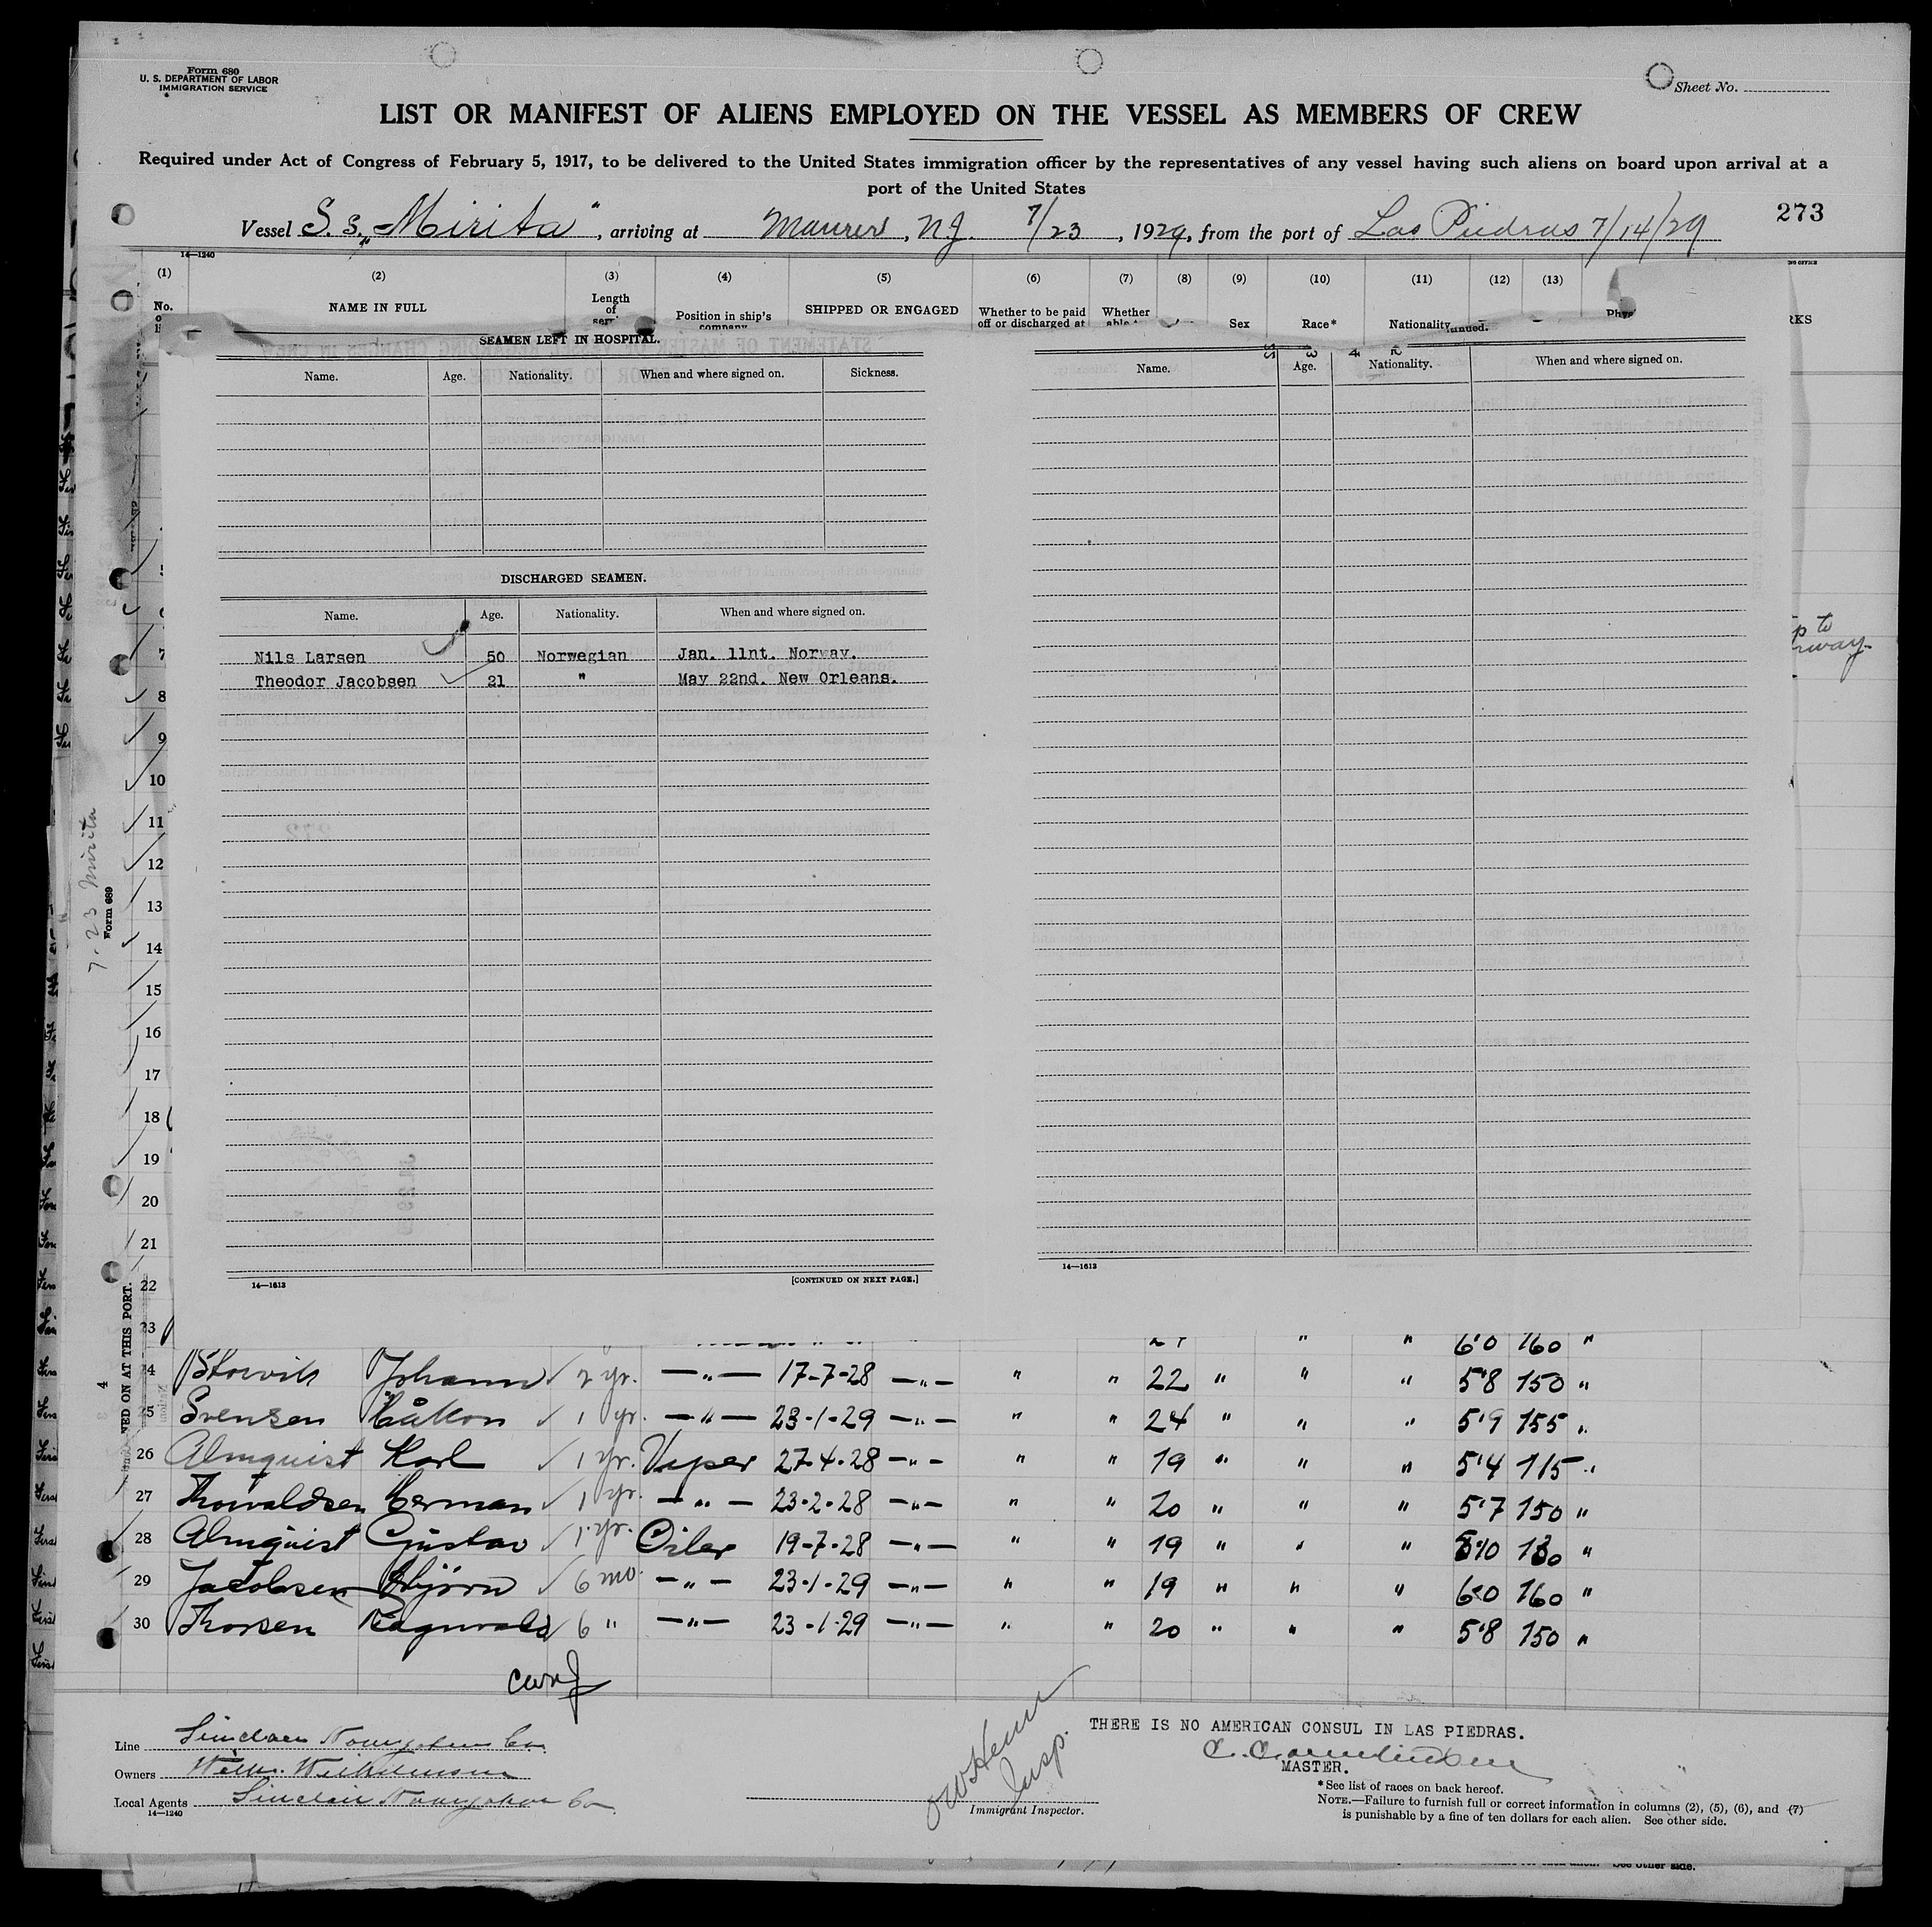 Form 680
U. S. DEPARTMENT OF LABOR
IMMIGRATION SERVICE
Sheet No.
LIST OR MANIFEST OF ALIENS EMPLOYED ON THE VESSEL AS MEMBERS OF CREW
Required under Act of Congress of February 5, 1917, to be delivered to the United States immigration officer by the representatives of any vessel having such aliens on board upon arrival at a
port of the United States
273
Vessel S. S. „Mirita", arriving at Maurer, NJ. 7/23, 1929, from the port of Las Piedras 7/14/29
14—1240
(1) (2) (3) (4) (5) (6) (7) (8) (9) (10) (11) (12) (13)
No. NAME IN FULL Length of Position in ship's company SHIPPED OR ENGAGED Whether to be paid off or discharged at Whether Sex Race* Nationality
SEAMEN LEFT IN HOSPITAL.
Name. Age. Nationality. When and where signed on. Sickness.
Name. Age. Nationality. When and where signed on.
DISCHARGED SEAMEN.
Name. Age. Nationality. When and where signed on.
Nils Larsen 50 Norwegian Jan. 11nt. Norway.
Theodor Jacobsen 21 " May 22nd. New Orleans.
14—1613 [CONTINUED ON NEXT PAGE.]
14—1613
7-23 Mirita
Form 689
4
NED ON AT THIS PORT.
7
8
9
10
11
12
13
14
15
16
17
18
19
20
21
22
23 " " 6'0 160 "
Johann 2 yr. —"— 17-7-28 —"— " " 22 " " " 5'8 150 "
Svensen Håkon 1 yr. —"— 23-1-29 —"— " " 24 " " " 5'9 155 "
26 Almquist Karl 1 yr. Viper 27-4-28 —"— " " 19 " " " 5'4 115 "
27 Thorvaldsen Herman 1 yr. —"— 23-2-28 —"— " " 20 " " " 5'7 150 "
28 Almquist Gustav 1 yr. Oiler 19-7-28 —"— " " 19 " " " 5'10 130 "
29 Jacobsen 6 mo. —"— 23-1-29 —"— " " 19 " " " 6'0 160 "
30 Thorsen Ragnvald 6 " —"— 23-1-29 —"— " " 20 " " " 5'8 150 "
Line Sinclair Navigation Co.
Owners Wilh. Wilhelmsen
Local Agents Sinclair Navigation Co
14—1240
Insp.
Immigrant Inspector.
THERE IS NO AMERICAN CONSUL IN LAS PIEDRAS.
MASTER.
*See list of races on back hereof.
NOTE.—Failure to furnish full or correct information in columns (2), (5), (6), and (7)
is punishable by a fine of ten dollars for each alien. See other side.
See other side.